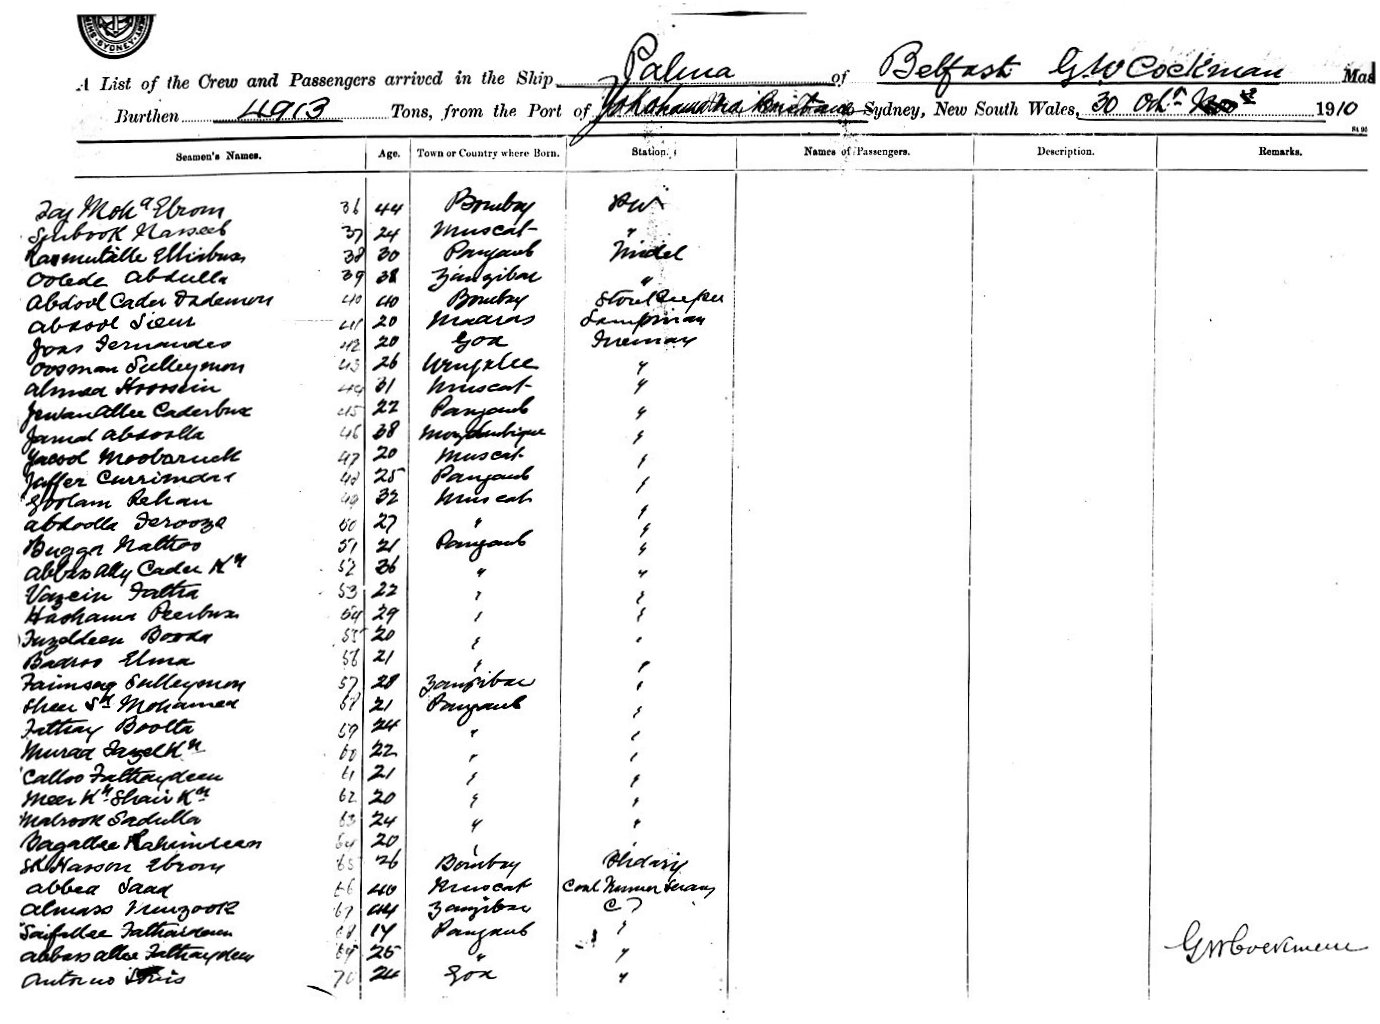 SYDNEY
A List of the Crew and Passengers arrived in the Ship Palma of Belfast G W Cockman Mas
Burthen 4913 Tons, from the Port of Yokohama via Brisbane to Sydney, New South Wales, 30 Octr 1910
St 95
Seamen's Names. Age. Town or Country where Born. Station. Names of Passengers. Description. Remarks.
Moha Ebrom 36 44 Bombay
Nasseeb 37 24 Muscat "
38 30 Panjaub Tindel
Abdulla 39 38 Zanzibar "
Abdool Cader 40 40 Bombay Storekeeper
Abdool 41 20 Madras Lampman
Joas Fernandes 42 20 Goa Fireman
Oosman Sulleymon 43 26 "
Almed Hoossein 44 31 Muscat "
Jewanallee Caderbux 45 22 Panjaub "
Jamal Abdoolla 46 38 Mozambique "
Yacood Moobaruck 47 20 Muscat "
Jaffer 48 25 Panjaub "
Goolam Rehan 49 32 Muscat "
Abdoolla Ferooze 50 27 " "
Bugga Nathoo 51 21 Panjaub "
Abbasally Cader Kn 52 36 " "
Vazein Fatta 53 22 " "
Hashama Peerbux 54 29 " "
Fuzeldeen Booda 55 20 " "
Badroo Elma 56 21 " "
Sulleymon 57 28 Zanzibar "
Sheer Mohamed 58 21 Panjaub "
Fattay Bootta 59 24 " "
Murad Fazel Kn 60 22 " "
Calloo Fattaydeen 61 21 " "
Meer Kn Shair Kn 62 20 " "
Mabrook Sadulla 63 24 " "
Bagallee Rahimdeen 64 20 " "
Sk Hasson Ebrom 65 26 Bombay
Abbea Saad 66 40 Muscat Coal Trimmer Serang
Almass 67 44 Zanzibar C T
Saifallee 68 Panjaub "
Abbasallee Fattaydeen 69 25 " "
Antonio 70 24 Goa "
G W Cockman